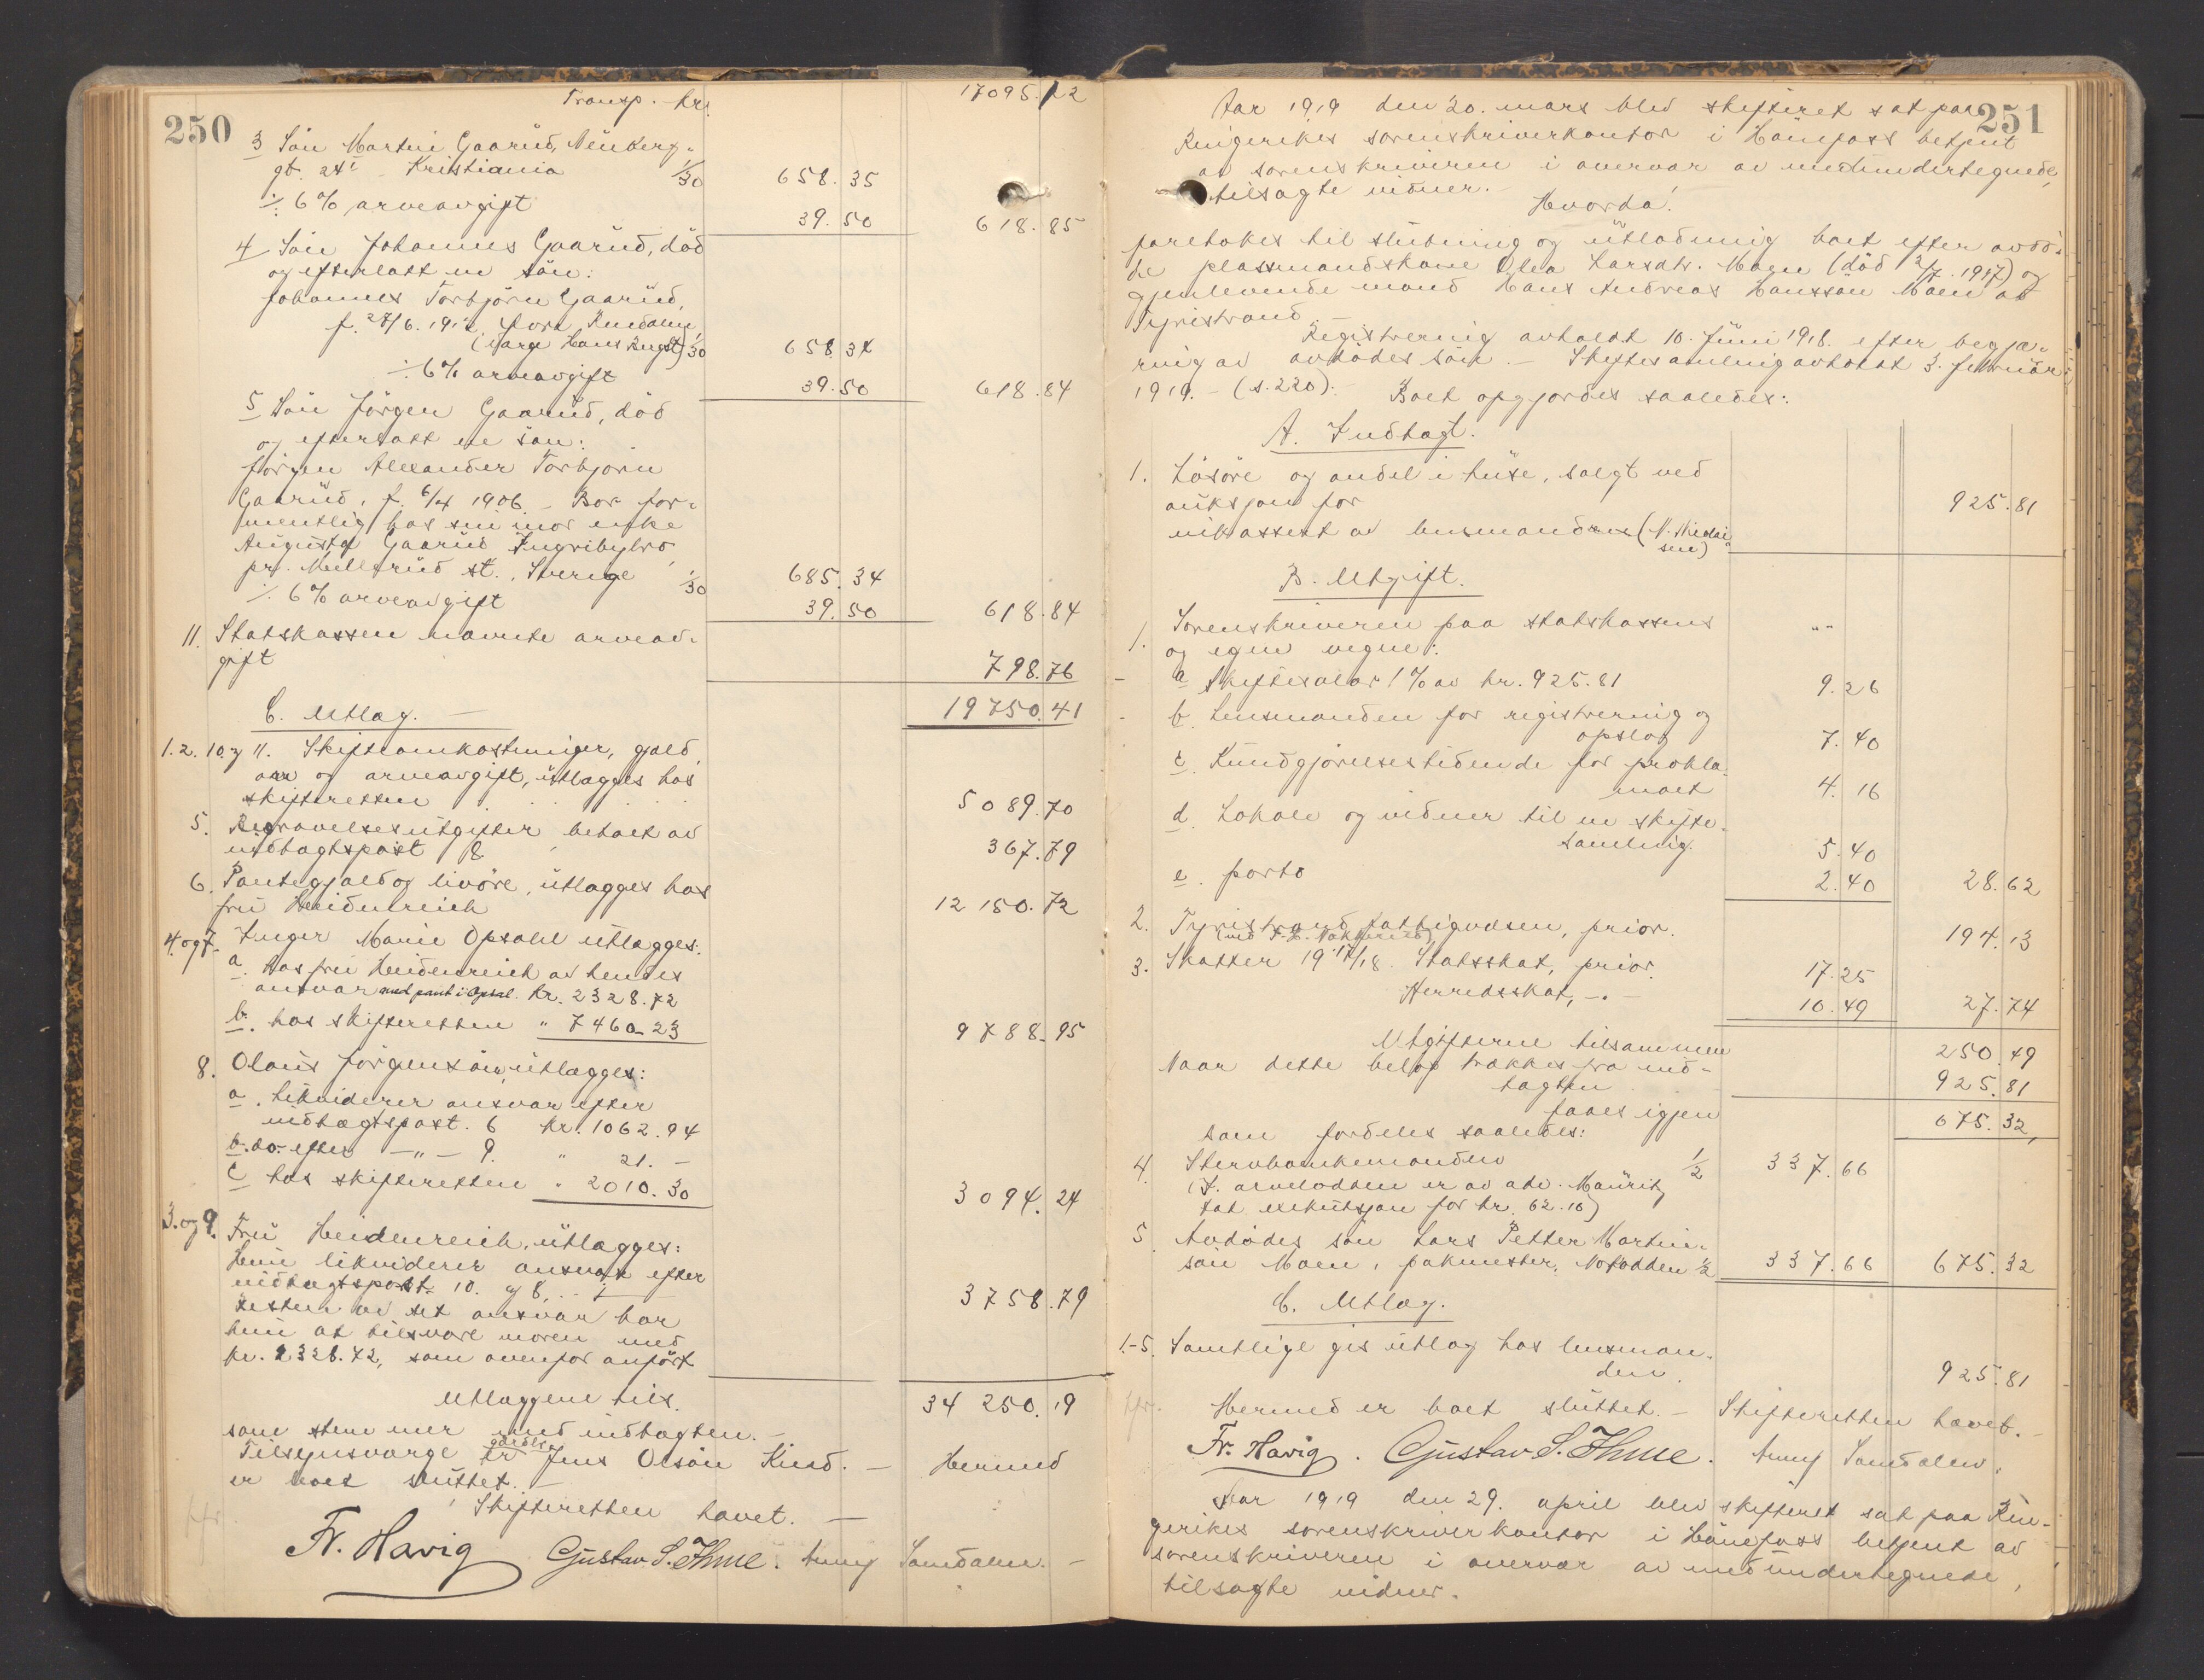 250
Transp. kr. 17095.12
3 Sön Martin Gaarud, Neuberg-
gt. 24 I Kristiania 1/30 658.35
÷ 6 % arveavgift 39.50 618.85
4 Sön Johannes Gaarud, död
og efterlatt en sön:
Johannes Torbjörn Gaarud,
f. 27/6.1912,
(Værge Hans Ringst.) 1/30 658.34
÷ 6 % arveavgift 39.50 618.84
5 Sön Jörgen Gaarud, död
og efterlatt en sön:
Jörgen Alexander Torbjörn
Gaarud, f. 6/4 1906. - Bor for-
mentlig hos sin mor enke
Augusta Gaarud
pr. Mellerud st., Sverige 1/30 685.34
÷ 6 % arveavgift 39.50 618.84
11. Statskassen nævnte arveav-
gift 798.76
19750.41
C. Utlæg. -
1.2.10 og 11. Skifteomkostninger, gjæld
og arveavgift, utlægges hos
skifteretten 5089.70
5. Begravelsesutgifter betalt av
indtægtspost 8. 367.79
6. Pantegjæld og livöre, utlægges hos
fru Heidenreich 12150.72
4. og 7. Inger Marie Opsahl utlægges:
a. hos fru Heidenreich av hendes
ansvar med pant i Opsal. kr. 2328.72
b. hos skifteretten " 7460.23 9788.95
8. Olaus Jörgensön utlægges:
a. Likviderer ansvar efter
indtægtspost. 6 kr. 1062.94
b. do. efter -"- 9. " 21.-
c hos skifteretten " 2010.30 3094.24
3. og 9. Fru Heidenreich, utlægges:
Hun likviderer ansvar efter
indtægtspost. 10. og 8, 3758.79
Resten av sit ansvar har
hun at tilsvare moren med
kr. 2328.72, som ovenfor anfört
Utlæggene tils. 34250.19
som stemmer med indtægten. -
Tilsynsværge er gaardbr. Jens Olsön Kind. - Hermed
er boet sluttet. -
Skifteretten hævet. -
Fr. Havig Gustav S. Ihme. Anny Samdalen. -
251
Aar 1919 den 20. mars blev skifteret sat paa
Ringerikes sorenskriverkontor i Hönefoss betjent
av sorenskriveren i overvær av medundertegnede,
tilsagte vidner. -
Hvorda!
foretokes til slutning og utlodning boet efter avdö-
de plassmandskone Olea Larsdtr. Moen (död 2/7.1917) og
gjenlevende mand Hans Andreas Hanssön Moen av
Tyristrand. -
Registrering avholdt 10. Juni 1918 efter begjæ-
ring av avdödes sön. - Skiftesamling avholdt 3. februar
1919. - (s.220). - Boet opgjordes saaledes:
A. Indtægt.
1. Lösöre og andel i huse, solgt ved
auksjon for 925.81
inkassert av lensmanden (N. Nicolai-
sen)
B. Utgift.
1. Sorenskriveren paa statskassens ""
og egne vegne:
a Skiftesalær 1 % av kr. 925.81 9.26
b. Lensmanden for registrering og
opslag 7.40
c. Kundgjörelsestidende for prokla-
maet 4.16
d. Lokale og vidner til en skifte-
samling 5.40
e. porto 2.40 28.62
2. Tyristrand fattigvæsen, prior. 194.13
3. Skatter 1917/18. Statsskat, prior. 17.25
Herredsskat, -.- 10.49 27.74
Utgifterne tilsammen 250.49
Naar dette belöp trækkes fra ind-
tægten 925.81
faaes igjen 675.32,
som fordeles saaledes:
4. Stervboenkemanden 1/2 337.66
(I arvelodden er av adv. Mauritz
tat exekutsjon for kr. 62.10)
5. Avdödes sön Lars Petter Martin-
sön Moen, pakmester, Notodden 1/2 337.66 675.32
C. Utlæg.
1.-5. Samtlige gis utlæg hos lensman-
den. 925.81
Hermed er boet sluttet. - Skifteretten hævet. -
Fr. Havig. Gustav S. Ihme. Anny Samdalen.
Aar 1919 den 29. april blev skifteret sat paa Rin-
gerikes sorenskriverkontor i Hönefoss betjent av
sorenskriveren i overvær av medundertegnede,
tilsagte vidner.